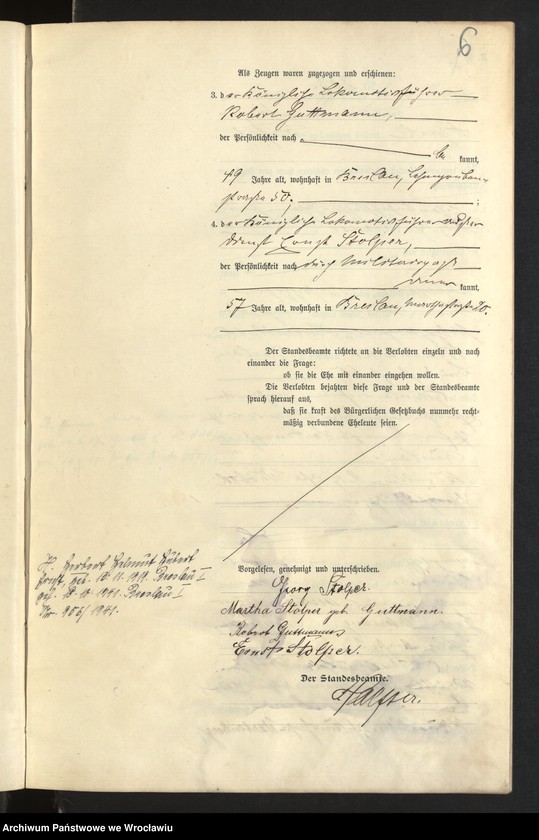 6
Als Zeugen waren zugezogen und erschienen:
3. der Königliche Lokomotivführer
Robert Guttmann,
der Persönlichkeit nach
be kannt,
49 Jahre alt, wohnhaft in Breslau,
straße 50, ;
4. der Königliche Lokomotivführer außer
Dienst Ernst Stolper,
der Persönlichkeit nach durch Militärpaß
aner kannt,
57 Jahre alt, wohnhaft in Breslau,
Der Standesbeamte richtete an die Verlobten einzeln und nach
einander die Frage:
ob sie die Ehe mit einander eingehen wollen.
Die Verlobten bejahten diese Frage und der Standesbeamte
sprach hierauf aus,
daß sie kraft des Bürgerlichen Gesetzbuchs nunmehr recht-
mäßig verbundene Eheleute seien.
Herbert Helmut
geb. 11. 1919. Breslau I
1941. Breslau I
Nr. 1941.
Vorgelesen, genehmigt und unterschrieben.
Georg Stolper.
Martha Stolper geb. Guttmann.
Robert Guttmann
Ernst Stolper.
Der Standesbeamte.
Archiwum Państwowe we Wrocławiu